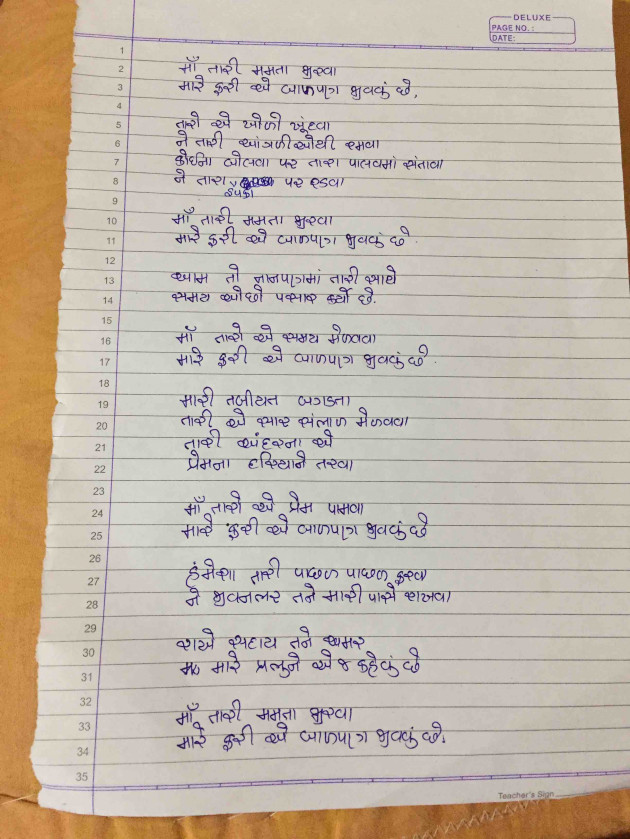 DELUXE
PAGE NO. :
DATE:
1
2 માઁ તારી મમતા જીરવા
3 મારે ફરી એ બાળપણ જીવવું છે.
4
5 તારો એ ખોળો ખૂંદવા
6 ને તારી આંગળીઓથી રમવા
7 કોઈના બોલવા પર તારા પાલવમાં સંતાવા
8 ને તારા ઠપકા પર રડવા
9
10 માઁ તારી મમતા જીરવા
11 મારે ફરી એ બાળપણ જીવવું છે.
12
13 આમ તો નાનપણમાં તારી સાથે
14 સમય ઓછો પસાર કર્યો છે.
15
16 માઁ તારો એ સમય મેળવવા
17 મારે ફરી એ બાળપણ જીવવું છે.
18
19 મારી તબીયત બગડતા
20 તારી એ સાર સંભાળ મેળવવા
21 તારી અંદરના એ
22 પ્રેમના દરિયાને તરવા
23
24 માઁ તારો એ પ્રેમ પામવા
25 મારે ફરી એ બાળપણ જીવવું છે
26
27 હંમેશા તારી પાછળ પાછળ ફરવા
28 ને જીવનભર તને મારી પાસે રાખવા
29
30 રાખે સદાય તને અમર
31 મારે પ્રભુને એ જ કહેવું છે
32
33 માઁ તારી મમતા જીરવા
34 મારે ફરી એ બાળપણ જીવવું છે.
35
Teacher's Sign